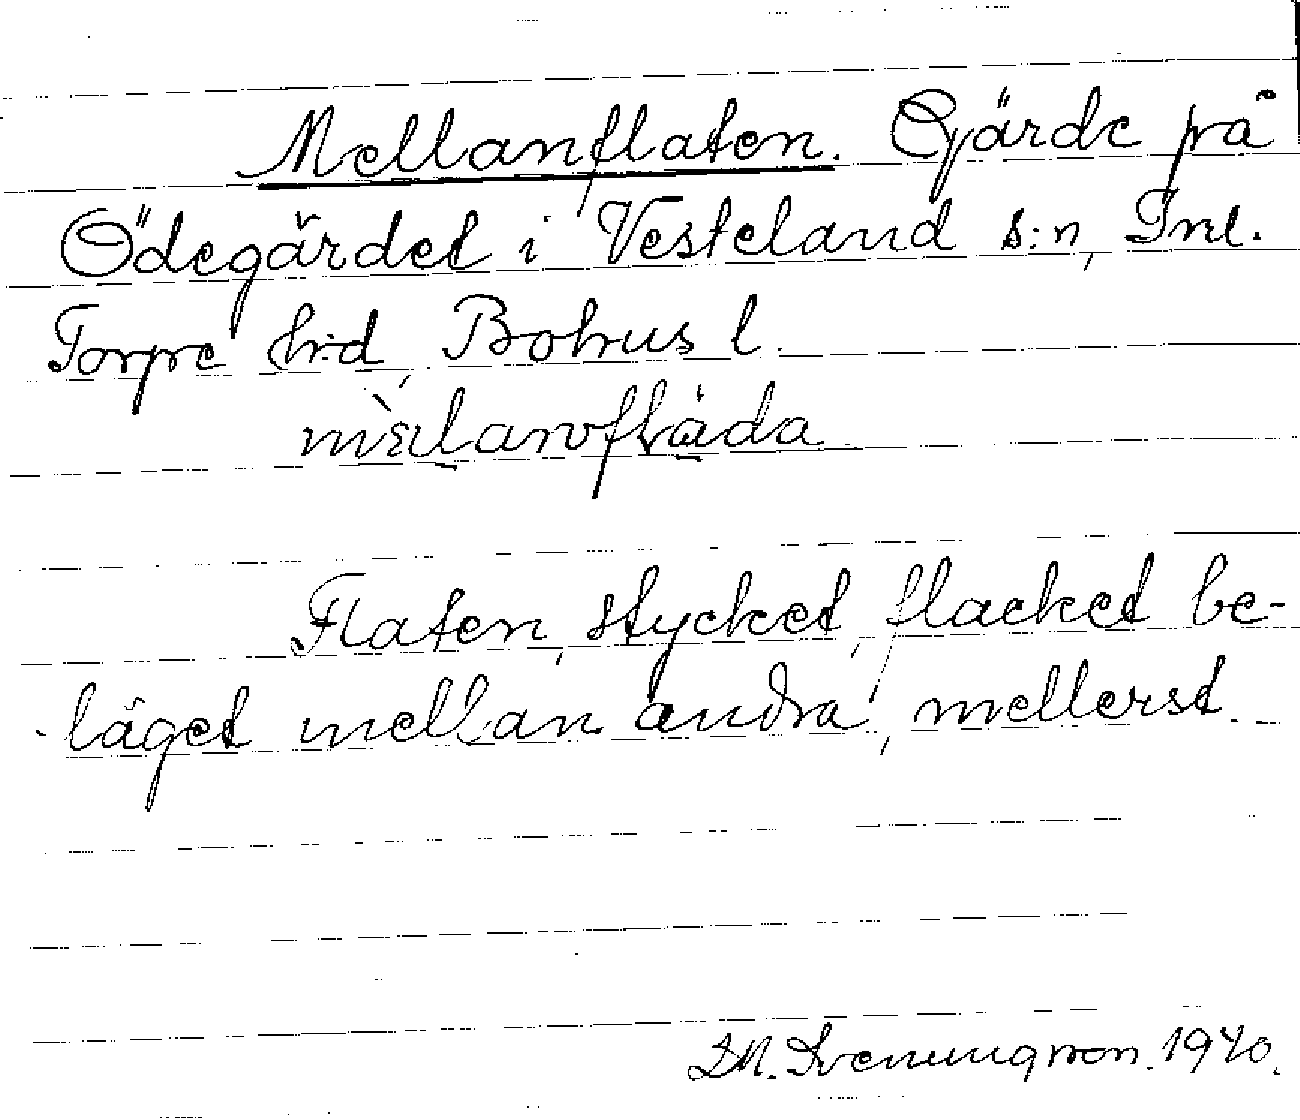 Mellanflaten. Gärde på
Ödegärdet i Vesteland s:n, Inl.
Torpe h:d, Bohus l.
Flaten, stycket, flacket be-
läget mellan andra, mellerst.
Svenungsson. 1940.